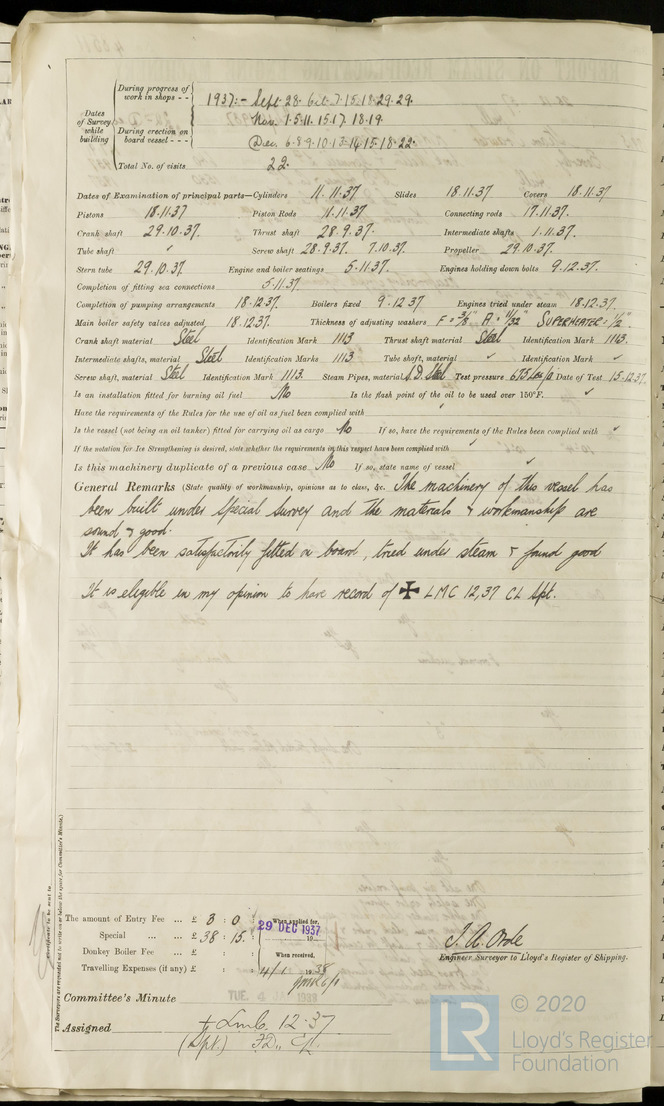 During progress of work in shops - -
1937:- Sept. 28. Oct. 7. 15. 18. 29. 29.
Nov. 1. 5. 11. 15. 17. 18. 19.
Dates of Survey while building
During erection on board vessel - - -
Dec. 6. 8. 9. 10. 13. 14. 15. 18. 22.
Total No. of visits 22.
Dates of Examination of principal parts—Cylinders 11.11.37 Slides 18.11.37 Covers 18.11.37
Pistons 18.11.37 Piston Rods 11.11.37 Connecting rods 17.11.37.
Crank shaft 29.10.37. Thrust shaft 28.9.37. Intermediate shafts 1.11.37.
Tube shaft Screw shaft 28.9.37. 7.10.37. Propeller 29.10.37.
Stern tube 29.10.37. Engine and boiler seatings 5.11.37. Engines holding down bolts 9.12.37.
Completion of fitting sea connections 5.11.37.
Completion of pumping arrangements 18.12.37. Boilers fixed 9.12.37 Engines tried under steam 18.12.37.
Main boiler safety valves adjusted 18.12.37. Thickness of adjusting washers F = 3/8" A = 11/32" SUPERHEATER = 1/2"
Crank shaft material Steel Identification Mark 1113 Thrust shaft material Steel Identification Mark 1113.
Intermediate shafts, material Steel Identification Marks 1113 Tube shaft, material ✓ Identification Mark ✓
Screw shaft, material Steel Identification Mark 1113. Steam Pipes, material S.D. Steel Test pressure 675 Date of Test 15.12.37.
Is an installation fitted for burning oil fuel No Is the flash point of the oil to be used over 150°F. ✓
Have the requirements of the Rules for the use of oil as fuel been complied with ✓
Is the vessel (not being an oil tanker) fitted for carrying oil as cargo No If so, have the requirements of the Rules been complied with ✓
If the notation for Ice Strengthening is desired, state whether the requirements in this respect have been complied with ✓
Is this machinery duplicate of a previous case No If so, state name of vessel ✓
General Remarks (State quality of workmanship, opinions as to class, &c. The machinery of this vessel has
been built under Special Survey and the materials & workmanship are
sound & good.
It has been satisfactorily fitted on board, tried under steam & found good
It is eligible in my opinion to have record of ✠ LMC 12,37 CL Spt.
Certificate to be sent to
(The Surveyors are requested not to write on or below the space for Committee's Minute.)
The amount of Entry Fee ... £ 3 : 0 : When applied for,
Special ... ... £ 38 : 15 : 29 DEC 1937
Donkey Boiler Fee ... £ : : When received,
Travelling Expenses (if any) £ : : 4/1 1938
J. A. Orde
Engineer Surveyor to Lloyd's Register of Shipping.
Committee's Minute TUE. 4 JAN 1938
Assigned + Lmb. 12.37
(Spt.) FD., CL
LR
© 2020
Lloyd's Register
Foundation